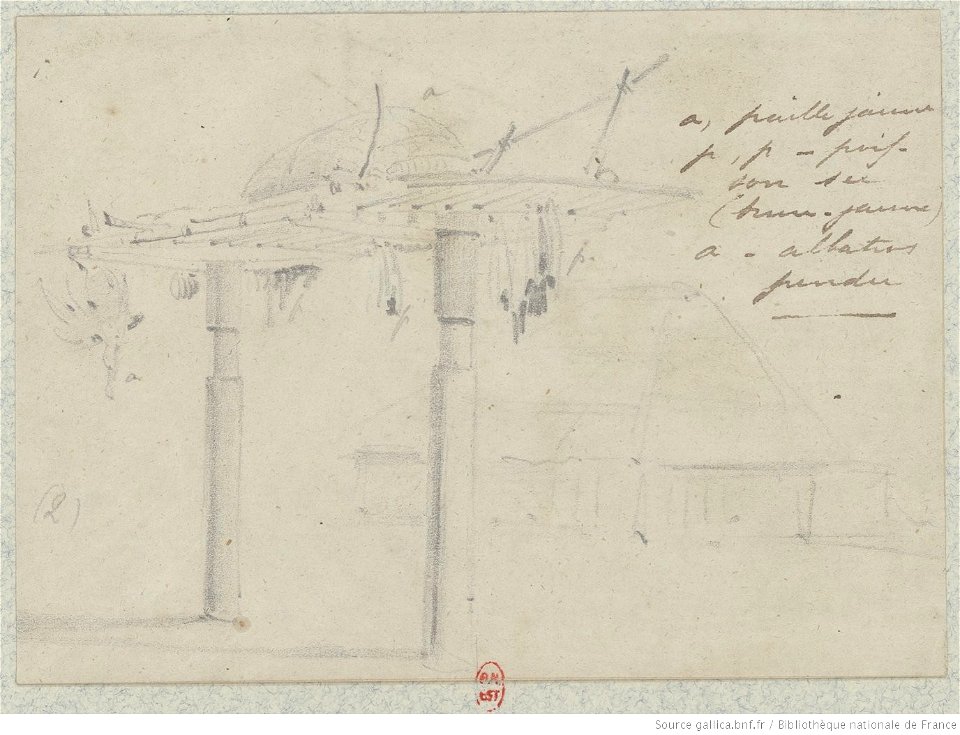 a
a, paille jaune
p, p - pois-
son sec
(brun-jaune)
a - albatros
pendu
p
p
a
(2)
Source gallica.bnf.fr / Bibliothèque nationale de France